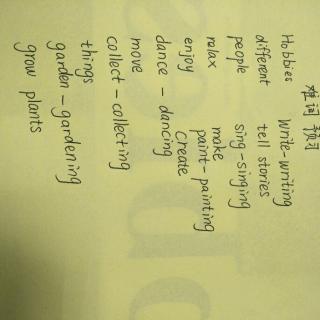 难词 预习
Hobbies Write-writing
different tell stories
people sing-singing
relax make
paint-painting
enjoy Create
dance - dancing
move
collect - collecting
things
garden - gardening
grow plants